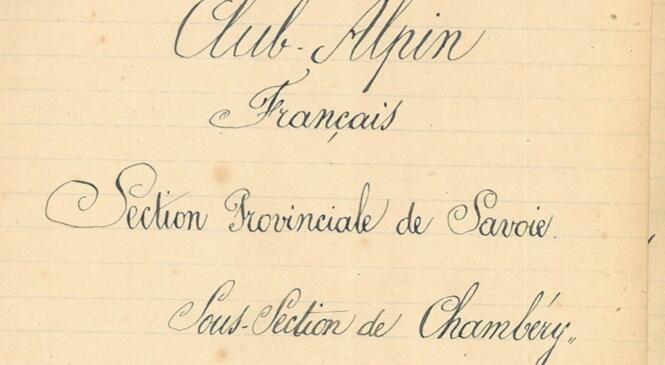 Club-Alpin
Français
Section Provinciale de Savoie.
Sous-Section de Chambéry„